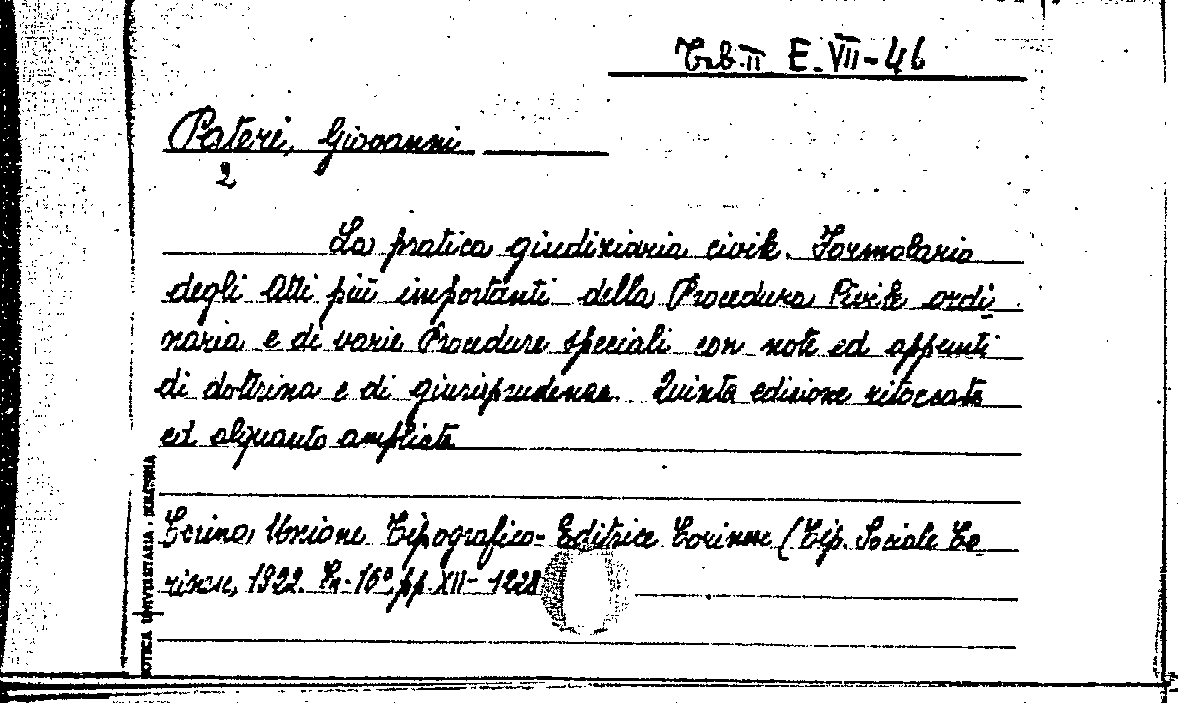 Trb.II E.VII-46
Pateri, Giovanni
2
La pratica giudiziaria civile. Formolario
degli Atti più importanti della Procedura Civile ordi
naria e di varie Procedure speciali con note ed appunti
di dottrina e di giurisprudenza. Quinta edizione ritoccata
ed alquanto ampliata
Torino, Unione Tipografico-Editrice Torinese (Tip. Sociale To
rinese, 1922. In-16°, pp. XII-1228
UNIVERSITARIA